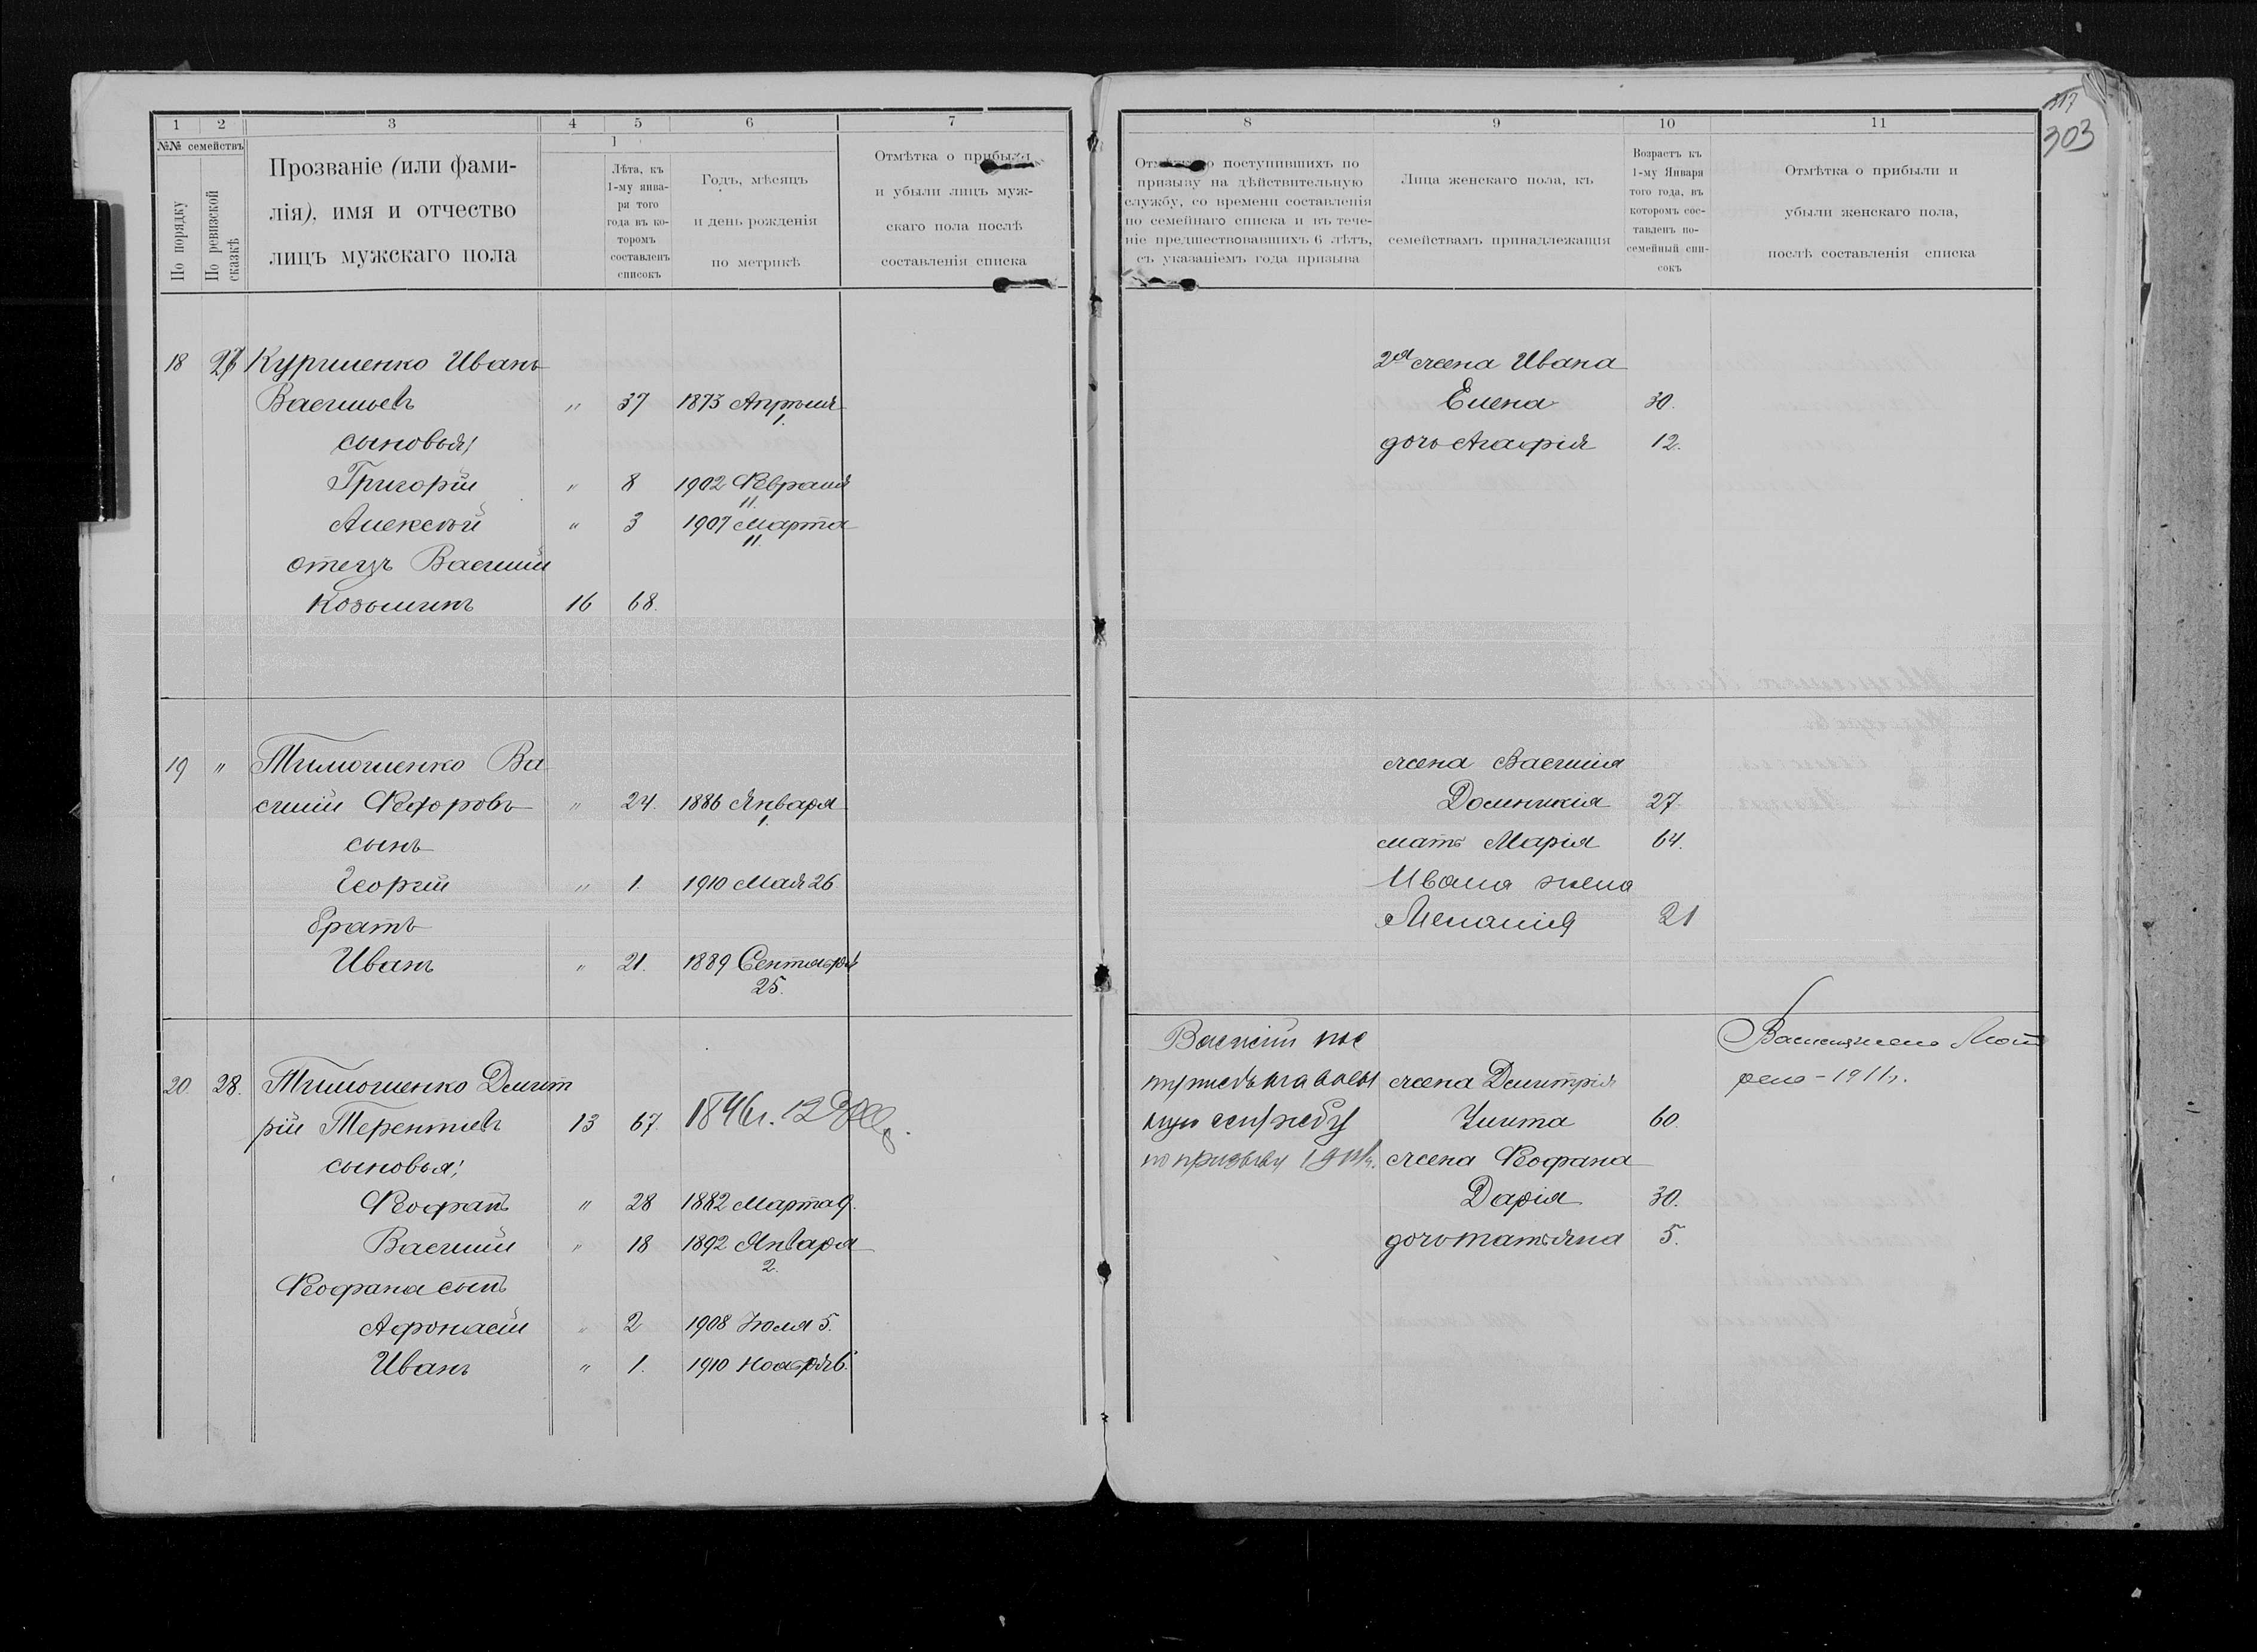 317
303
1 2 3 4 5 6 7
№№ семействъ
По порядку
По ревизской сказкѣ
Прозваніе (или фами-
лія), имя и отчество
лицъ мужскаго пола
1
Лѣта, къ
1-му янва-
ря того
года въ ко-
торомъ
составленъ
списокъ
Годъ, мѣсяцъ
и день рожденія
по метрикѣ
Отмѣтка о прибыли
и убыли лицъ муж-
скаго пола послѣ
составленія списка
18 27 Куриленко Иванъ
Васильевъ " 37 1873 Апрѣля
1.
сыновья:
Григорій " 8 1902 Февраля
11.
Алексѣй " 3 1907 Марта
11.
отецъ Василій
Козьминъ 16 68.
19 " Тимошенко Ва
силій Федоровъ " 24. 1886 Января
1.
сынъ
Георгій " 1. 1910 Мая 26
братъ
Иванъ " 21. 1889 Сентября
25.
20. 28. Тимошенко Дмит
рій Терентіевъ 13 67. 1846г. 12
сыновья:
Феофанъ " 28 1882 Марта 9.
Василій " 18 1892 Января
2.
Феофана сынъ
Афонасій " 2 1908 Іюля 5.
Иванъ " 1. 1910 Ноября 6.
8 9 10 11
Отмѣтка о поступившихъ по
призыву на дѣйствительную
службу, со времени составленія
по семейнаго списка и въ тече-
ніе предшествовавшихъ 6 лѣтъ,
съ указаніемъ года призыва
Лица женскаго пола, къ
семействамъ принадлежащія
Возрастъ къ
1-му Января
того года, въ
которомъ сос-
тавленъ по-
семейный спи-
сокъ
Отмѣтка о прибыли и
убыли женскаго пола,
послѣ составленія списка
2я жена Ивана
Елена 30.
дочь Агафія 12.
жена Василія
Домникія 27.
мать Марія 64.
Ивана жена
Меланія 21
Василій пос
на воен
ную службу
по призыву 191
жена Дмитрія
Улита 60.
жена Феофана
Дарія 30.
дочь Татьяна 5.
Васил жена Мот
рена - 1911г.